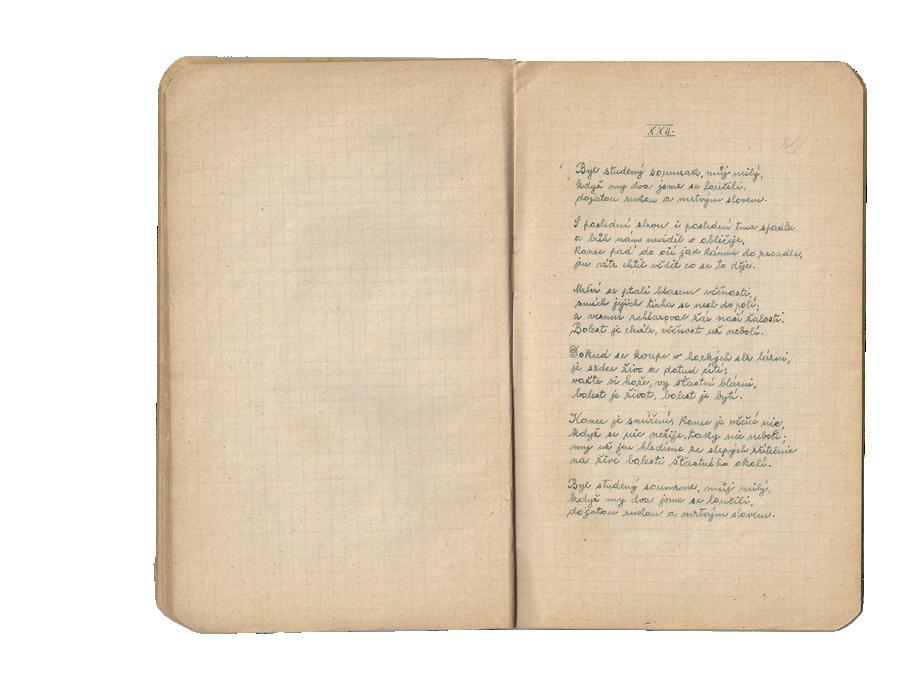 XXII.
Byl studený soumrak, můj milý,
když my dva jsme se loučili,
dojatou rukou a mrtvým slovem.
S poslední slzou i poslední tma spadla
a bůh nám neviděl v obličeje,
konec pad' do očí jak kámen do zrcadla,
jen vítr chtěl vědět co se to děje.
Mrtví se ptali hlasem věčnosti,
smích jejich ticha se nesl do polí;
a vesmír zchlazoval žár naší žalosti.
Bolest je chvíle, věčnost už nebolí.
Dokud se koupe v horkých slz lázni,
je srdce živo a dotud cítí;
važte si hoře, vy šťastní blázni,
bolest je život, bolest je bytí.
Konec je smíření, konec je věčné nic,
když se nic nežije, taky nic nebolí;
my už jen hledíme ze slepých zřítelnic
na živé bolesti šťastného okolí.
Byl studený soumrak, můj milý,
když my dva jsme se loučili,
dojatou rukou a mrtvým slovem.